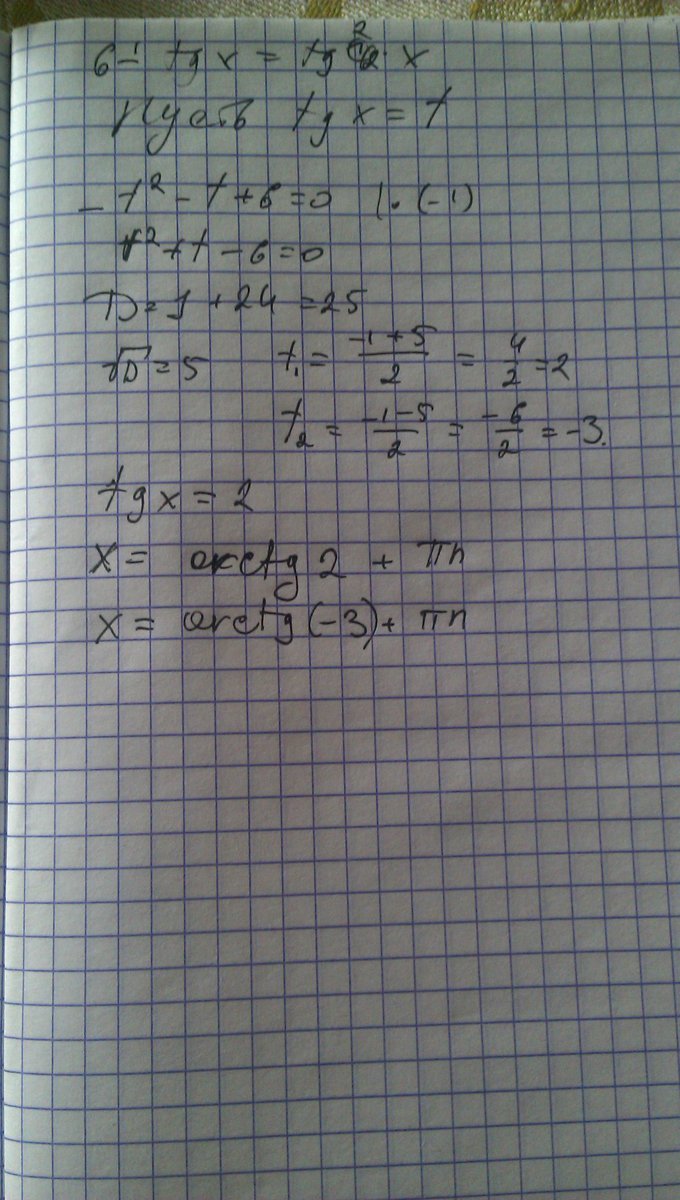 6 - tg x = tg² x
Пусть tg x = t
- t² - t + 6 = 0 | · (-1)
t² + t - 6 = 0
D = 1 + 24 = 25
√D = 5 t₁ = (-1 + 5)/2 = 4/2 = 2
t₂ = (-1 - 5)/2 = -6/2 = -3.
tg x = 2
x = arctg 2 + πn
x = arctg (-3) + πn